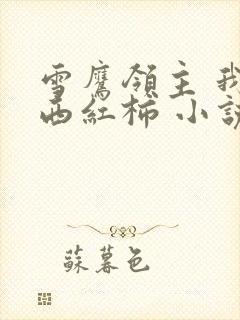 雪鹰領主 我
西紅柿 小說
蘇暮色